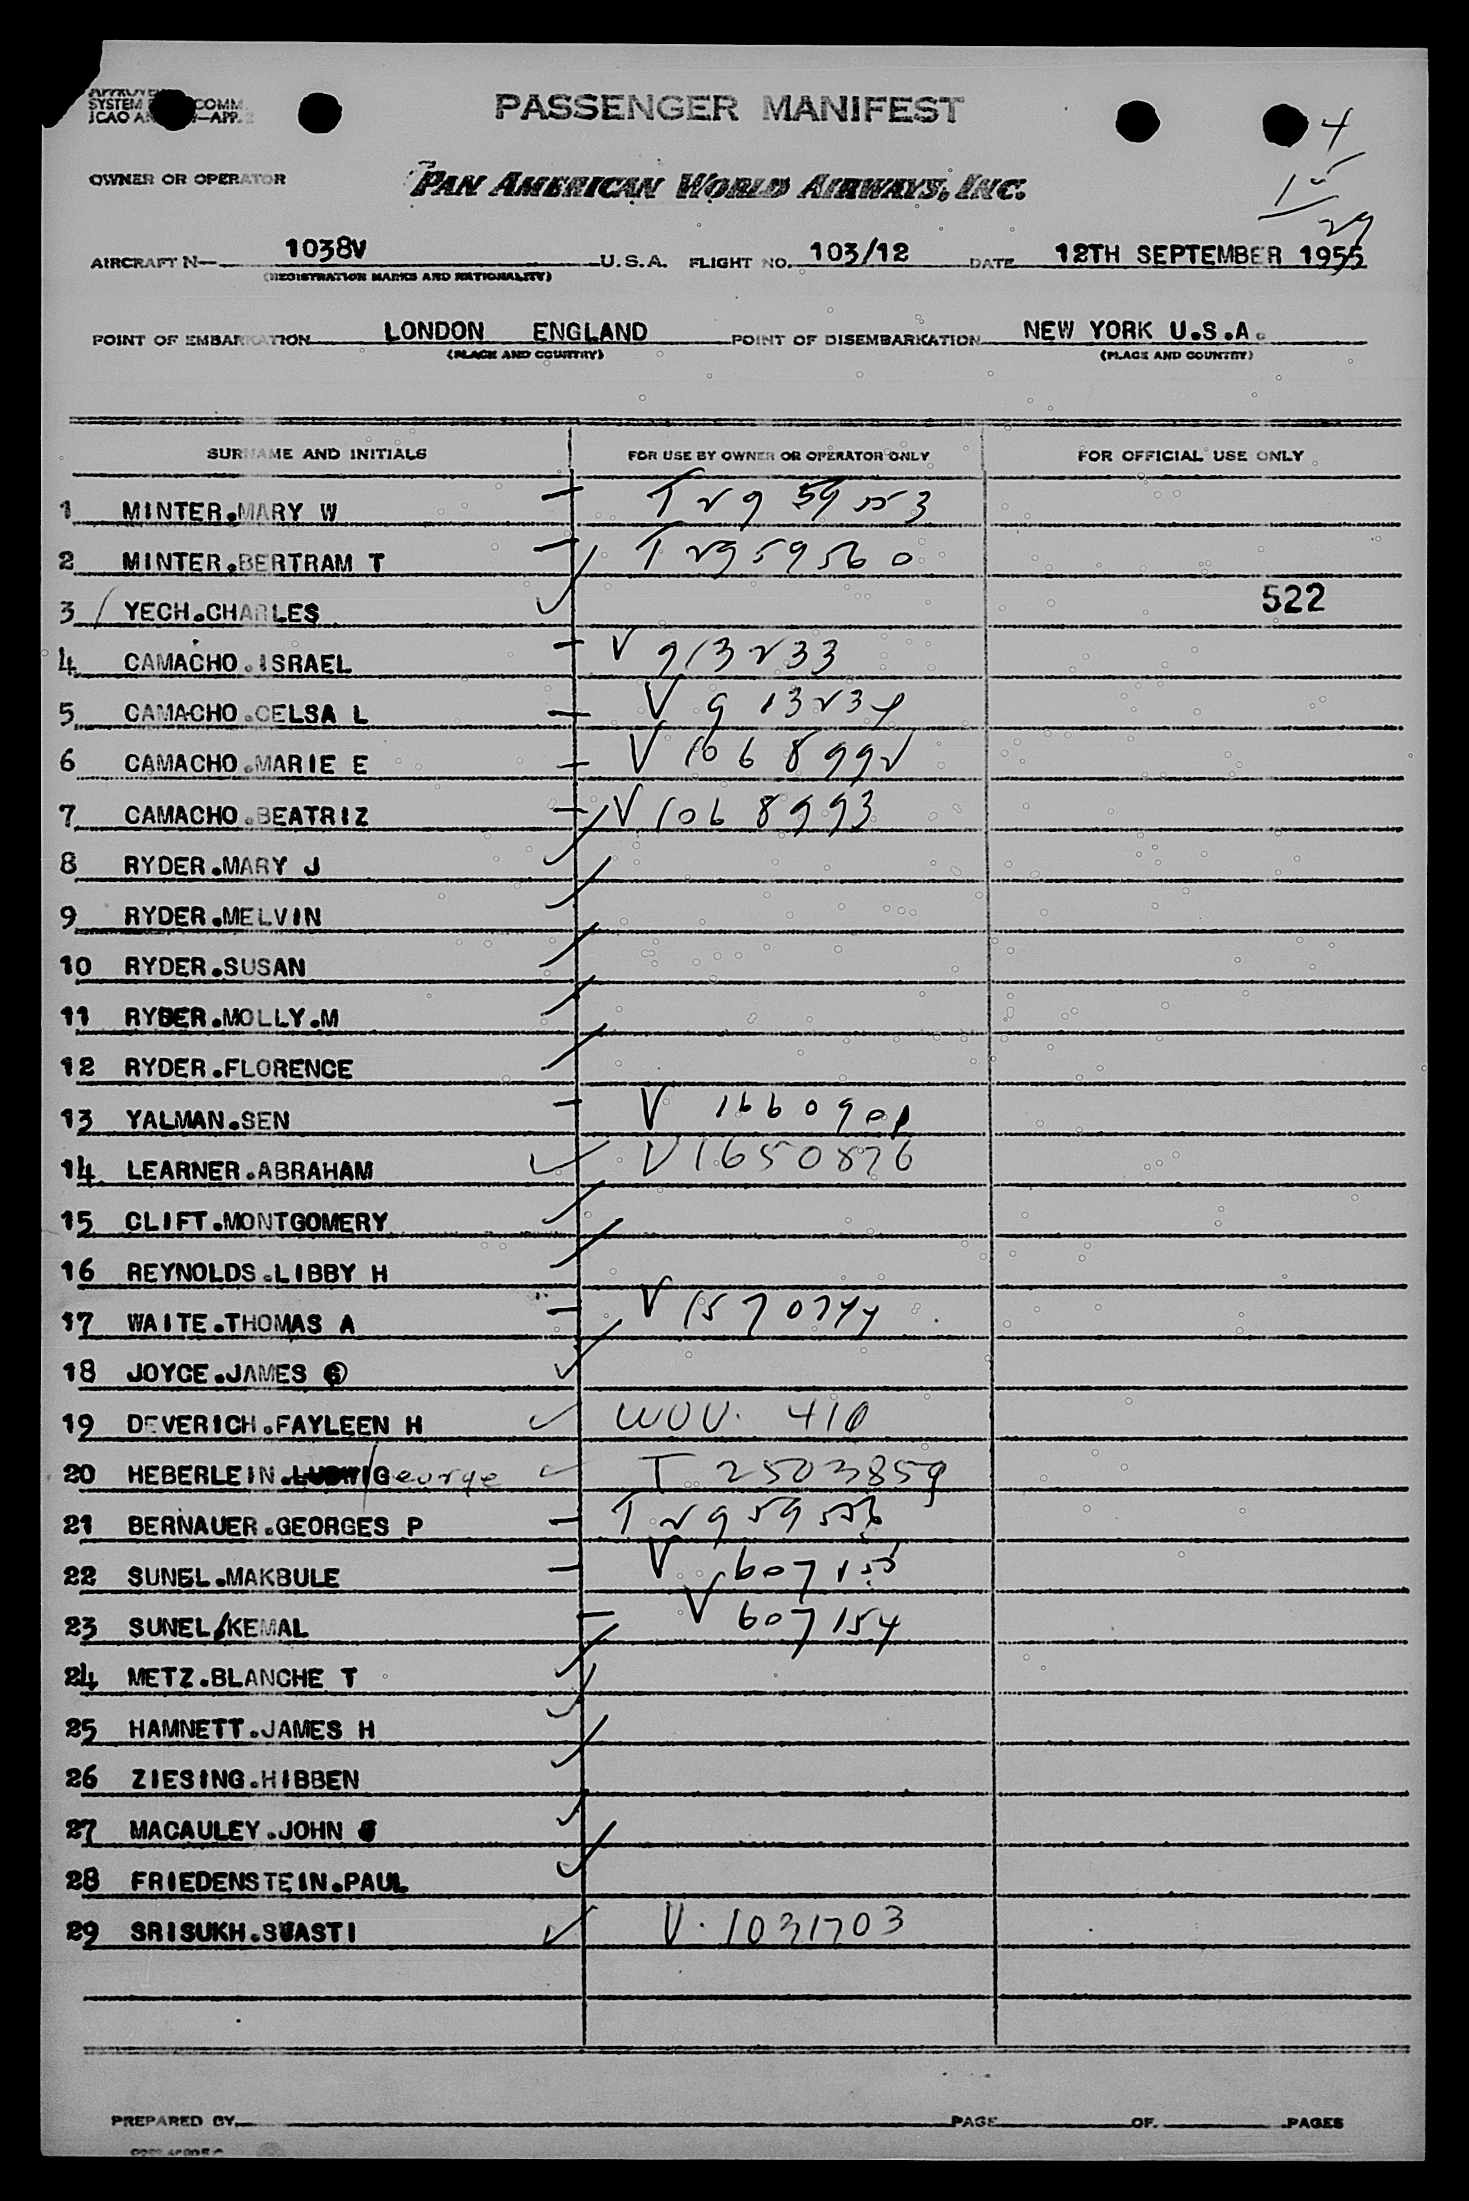 SYSTEM COMM.
ICAO AN —APP. 2
PASSENGER MANIFEST
4
OWNER OR OPERATOR PAN AMERICAN WORLD AIRWAYS, INC.
29
AIRCRAFT N— 1038V U.S.A. FLIGHT NO. 103/12 DATE 12TH SEPTEMBER 1955
(REGISTRATION MARKS AND NATIONALITY)
POINT OF EMBARKATION LONDON ENGLAND POINT OF DISEMBARKATION NEW YORK U.S.A.
(PLACE AND COUNTRY) (PLACE AND COUNTRY)
SURNAME AND INITIALS FOR USE BY OWNER OR OPERATOR ONLY FOR OFFICIAL USE ONLY
1 MINTER.MARY W T 2959553
2 MINTER.BERTRAM T T 2959560
3 YECH.CHARLES 522
4 CAMACHO.ISRAEL V 913233
5 CAMACHO.CELSA L V 913234
6 CAMACHO.MARIE E V 1068992
7 CAMACHO.BEATRIZ V 1068993
8 RYDER.MARY J
9 RYDER.MELVIN
10 RYDER.SUSAN
11 RYDER.MOLLY.M
12 RYDER.FLORENCE
13 YALMAN.SEN V
14 LEARNER.ABRAHAM V1650876
15 CLIFT.MONTGOMERY
16 REYNOLDS.LIBBY H
17 WAITE.THOMAS A V 1570744
18 JOYCE.JAMES G
19 DEVERICH.FAYLEEN H WOV. 410
20 HEBERLEIN.LUDWIG George T 2503859
21 BERNAUER.GEORGES P T 2959556
22 SUNEL.MAKBULE V 607155
23 SUNEL/KEMAL V 607154
24 METZ.BLANCHE T
25 HAMNETT.JAMES H
26 ZIESING.HIBBEN
27 MACAULEY.JOHN
28 FRIEDENSTEIN.PAUL
29 SRISUKH.SUASTI V. 1031703
PREPARED BY PAGE OF PAGES